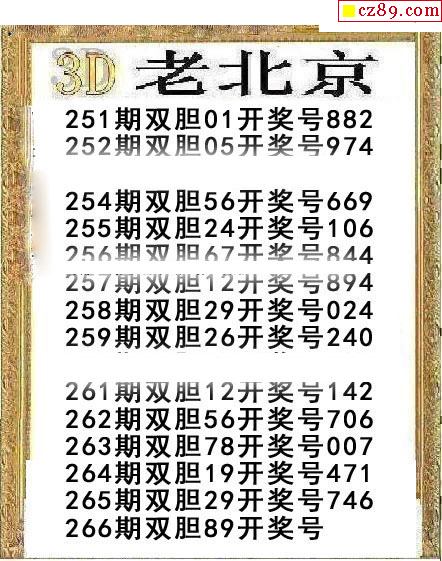 cz89.com
3D 老北京
251期双胆01开奖号882
252期双胆05开奖号974
254期双胆56开奖号669
255期双胆24开奖号106
256期双胆67开奖号844
257期双胆12开奖号894
258期双胆29开奖号024
259期双胆26开奖号240
261期双胆12开奖号142
262期双胆56开奖号706
263期双胆78开奖号007
264期双胆19开奖号471
265期双胆29开奖号746
266期双胆89开奖号